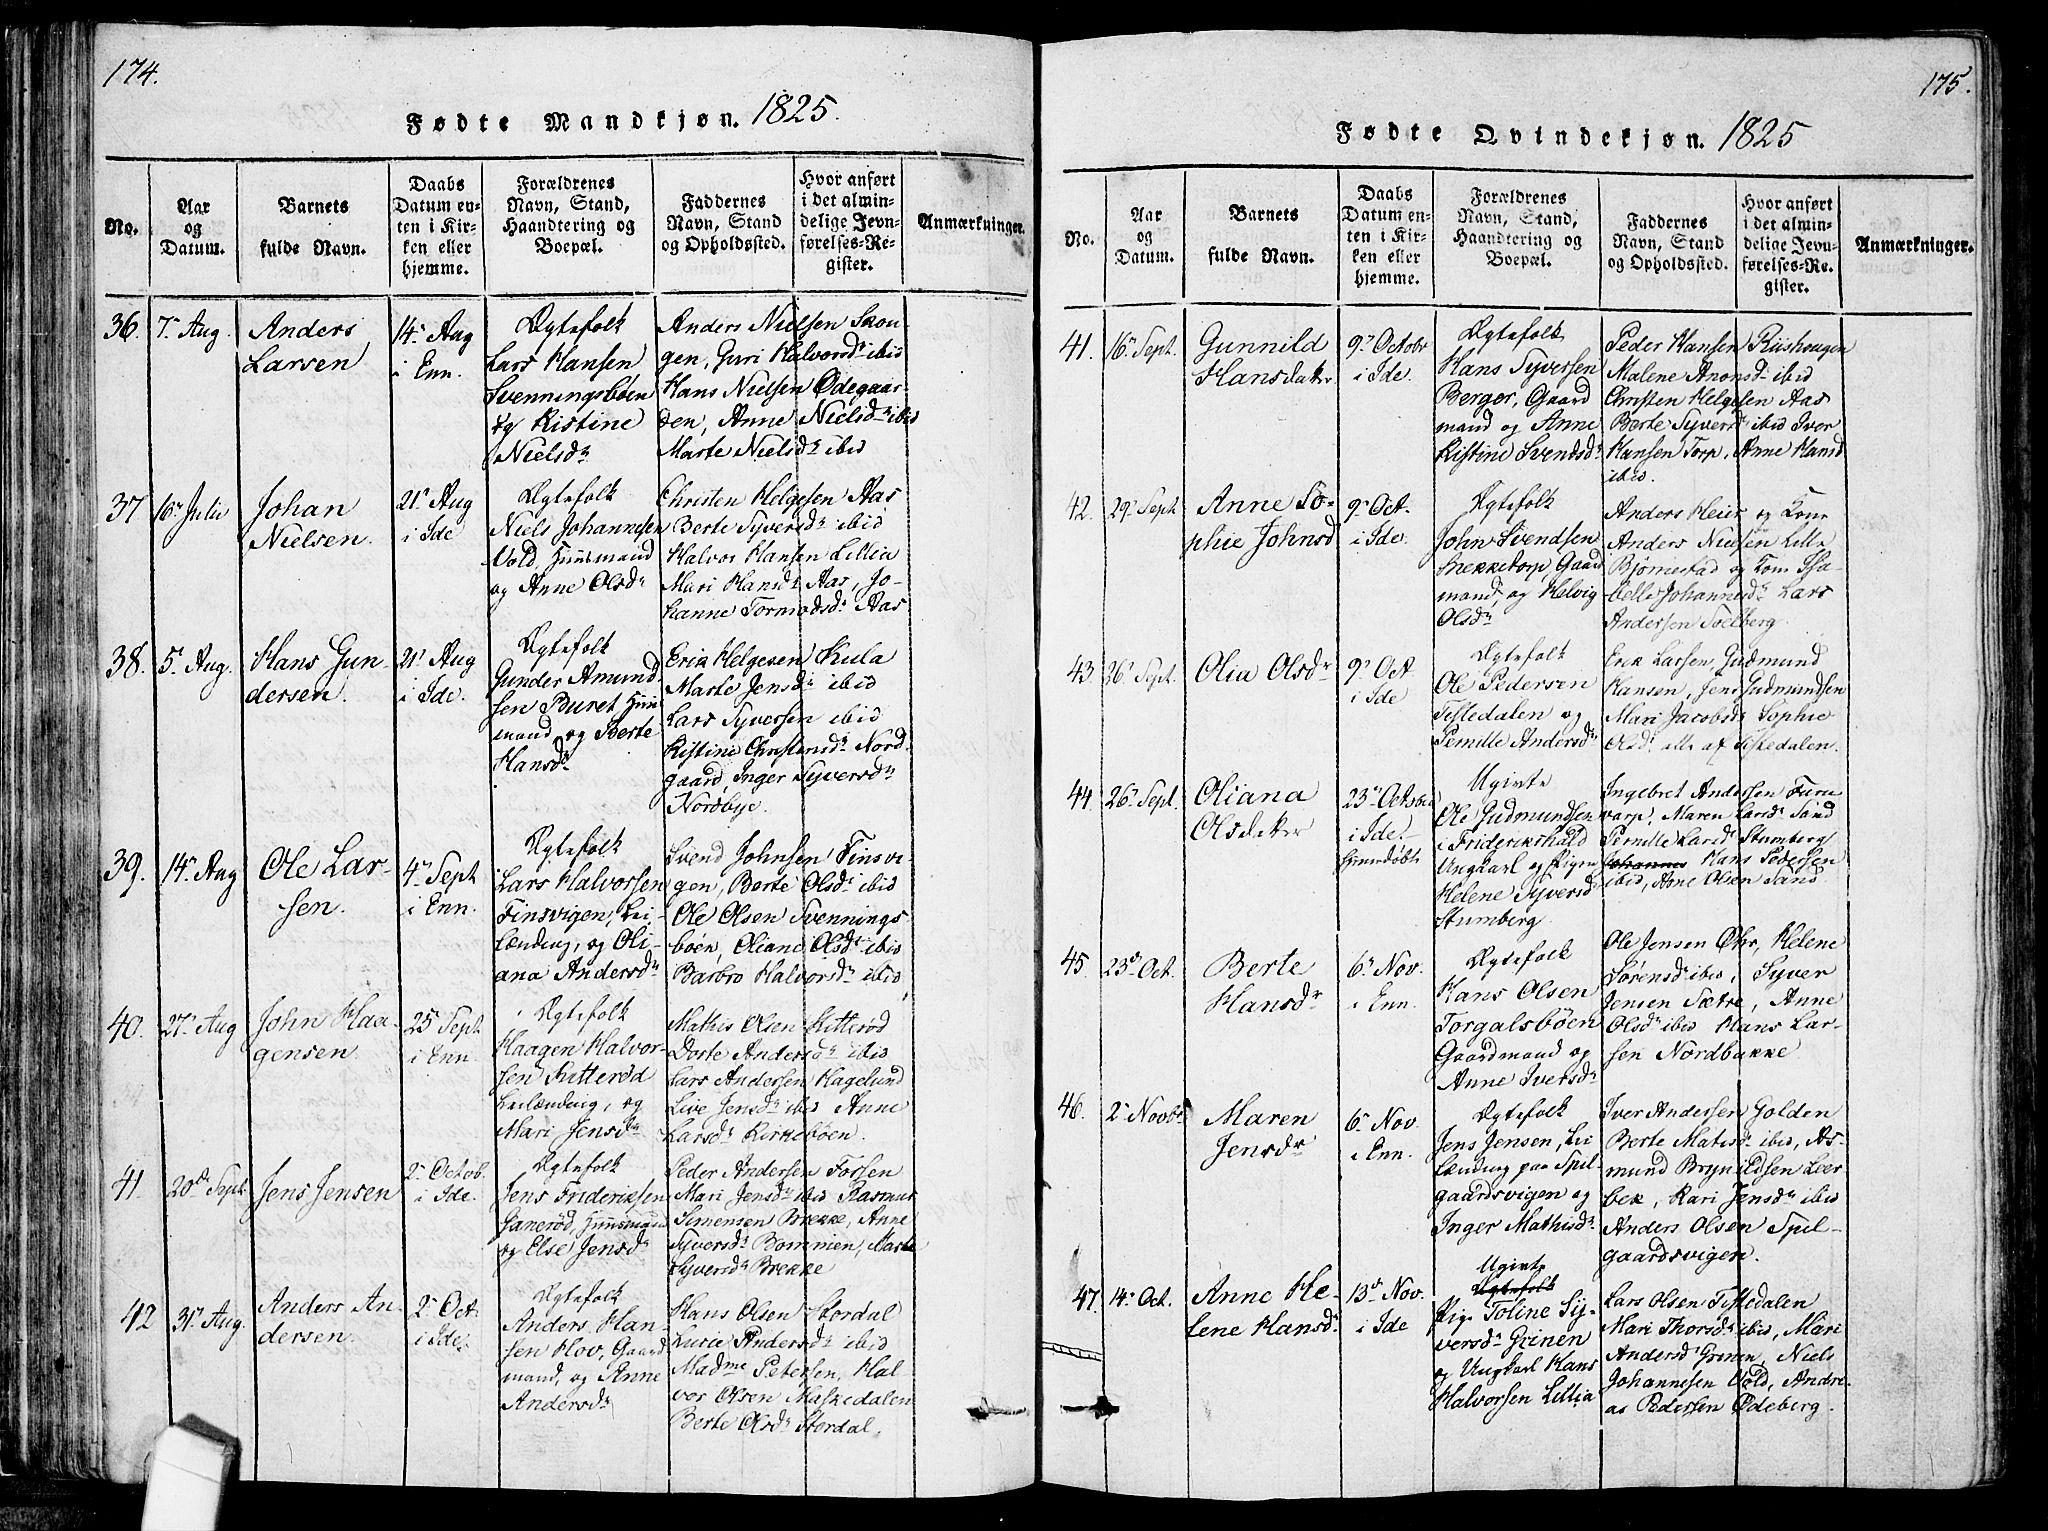 174.
Fødte Mandkjøn. 1825.
No.
Aar
og
Datum.
Barnets
fulde Navn.
Daabs
Datum en-
ten i Kir-
ken eller
hjemme.
Forældrenes
Navn, Stand,
Haandtering og
Boepæl.
Faddernes
Navn, Stand
og Opholdssted.
Hvor anført
i det almin-
delige Jevn-
førelses-Re-
gister.
Anmærkninger.
36.
7de Aug.
Anders
Larsen
14de Aug
i Enn.
Ægtefolk
Lars Hansen
Svenningsbøen
og Kistine
Nielsdr
Anders Nielsen Skou-
gen, Guri Halvorsdr ibid
Hans Nielsen Ødegaar-
den, Anne Nielsdr ibid
Marte Nielsdr ibid
37
16de Julii
Johan
Nielsen.
21de Aug
i Ide
Ægtefolk
Niels Johannesen
Vold, Huusmand
og Anne Olsdr
Christen Helgesen Aas
Berte Syversdr ibid
Halvor Hansen Lillia
Mari Hansdr Aas, Jo-
hanne Tormodsdr Aas
38.
5de Aug.
Hans Gun-
dersen.
21de Aug
i Ide.
Ægtefolk
Gunder Amund-
sen Buret Huus
mand, og Berte
Hansdr
Erik Helgesen Kula
Marte Jensdr ibid
Lars Syversen ibid
Kistine Christensdr Nord-
gaard, Inger Syversdr
Nordbye.
39.
14de Aug
Ole Lar-
sen.
4de Sept
i Enn.
Ægtefolk
Lars Halvorsen
Finsvigen, Lei-
lænding, og Oli-
ana Andersdr
Svend Johnsen Finsvi-
gen, Berte Olsdr ibid
Ole Olsen Svennings
bøen, Oliane Olsdr ibid
Barbro Halvorsdr ibid
40.
27de Aug
John Haa-
gensen.
25de Sept
i Enn.
Ægtefolk
Haagen Halvor-
sen Kitterød
Leilænding, og
Mari Jensdr
Mathis Olsen Kitterød
Dorte Andersdr ibid
Lars Andersen Hagelund
Live Jensdr ibid Anne
Larsdr Kirkebøen.
41
20de Sept
Jens Jensen
2de Octob.
i Ide.
Ægtefolk
Jens Frideriksen
Huusmand
og Else Jensdr
Peder Andersen Torsen
Mari Jensdr ibid Rasmus
Simensen Brekke, Anne
Syversdr Bommen, Marte
Syversdr Brekke
42
31de Aug.
Anders An-
dersen.
2de Oct.
i Ide.
Ægtefolk
Anders Han-
sen Hov, Gaard
mand, og Anne
Andersdr
Hans Olsen Stordal
Lucie Andersdr ibid
Madme Petersen, Hal
vor Olsen Maskedalen
Berte Olsdr Stordal.
175.
Fødte Qvindekjøn. 1825
No.
Aar
og
Datum.
Barnets
fulde Navn.
Daabs
Datum en-
ten i Kir-
ken eller
hjemme.
Forældrenes
Navn, Stand,
Haandtering og
Boepæl.
Faddernes
Navn, Stand
og Opholdssted.
Hvor anført
i det almin-
delige Jevn-
førelses-Re-
gister.
Anmærkninger.
41.
16de Sept.
Gunnild
Hansdatter
9de Octobr
i Ide.
Ægtefolk
Hans Syversen
Berger, Gaard
mand og Anne
Kistine Svendsdr
Peder Hansen Riishougen
Malene Anonsdr ibid
Christen Helgesen Aas
Berte Syversdr ibid Iver
Hansen Torp, Anne Hansd
ibid.
42.
29de Sept
Anne So-
phie Johnsd
9de Oct.
i Ide.
Ægtefolk
John Svendsen
Snekketorp Gaard
mand, og Helvig
Olsdr
Anders Heier og Kone
Anders Nielsen Lille
Bjørnestad og Kone Isa-
belle Johannesdr Lars
Andersen Solberg.
43
26de Sept.
Olia Olsdr
9de Oct
i Ide
Ægtefolk
Ole Pedersen
Tistedalen og
Pernille Andersdr
Erik Larsen, Gudmund
Hansen, Jens Gudmundsen
Mari Jacobsdr Sophie
Olsdr alle af Tistedalen.
44
26de Sept.
Oliana
Olsdatter
23de October
i Ide.
hjemmedøbt
Ugivte
Ole Gudmundsen
i Friderikshald
Ungkarl og Pigen
Helene Syversdr
Stumberg
Ingebret Andersen Furu
varp, Maren Larsdr Sand
Pernille Larsdr Stumberg
Johannes Hans Pedersen
ibid, Arne Olsen Sand.
45.
23de Oct.
Berte
Hansdr
6te Nov.
i Enn.
Ægtefolk
Hans Olsen
Torgalsbøen
Gaardmand og
Anne Iversdr
Ole Jensen Øhr, Helene
Sørensdr ibid, Syver
Jensen Sætre, Anne
Olsdr ibid Hans Lar-
sen Nordbakke
46.
2de Novbr
Maren
Jensdr
6te Nov.
i Enn.
Ægtefolk
Jens Jensen, Lei
lænding paa Spil-
gaardsvigen og
Inger Mathisdr
Iver Andersen Golden
Berte Matisdr ibid, As-
mund Brynildsen Leer-
bek, Kari Jensdr ibid
Anders Olsen Spil-
gaardsvigen.
47.
14de Oct.
Anne He-
lene Hansdr
13de Nov.
i Ide
Ugivte
Ægtefolk
Pige Toline Sy-
versdr Grinen
og Ungkarl Hans
Halvorsen Lillia
Lars Olsen Tistedalen
Mari Thorsdr ibid, Mari
Andersdr Grinen, Niels
Johannesen Vold, Andre-
as Pedersen Ødeberg.